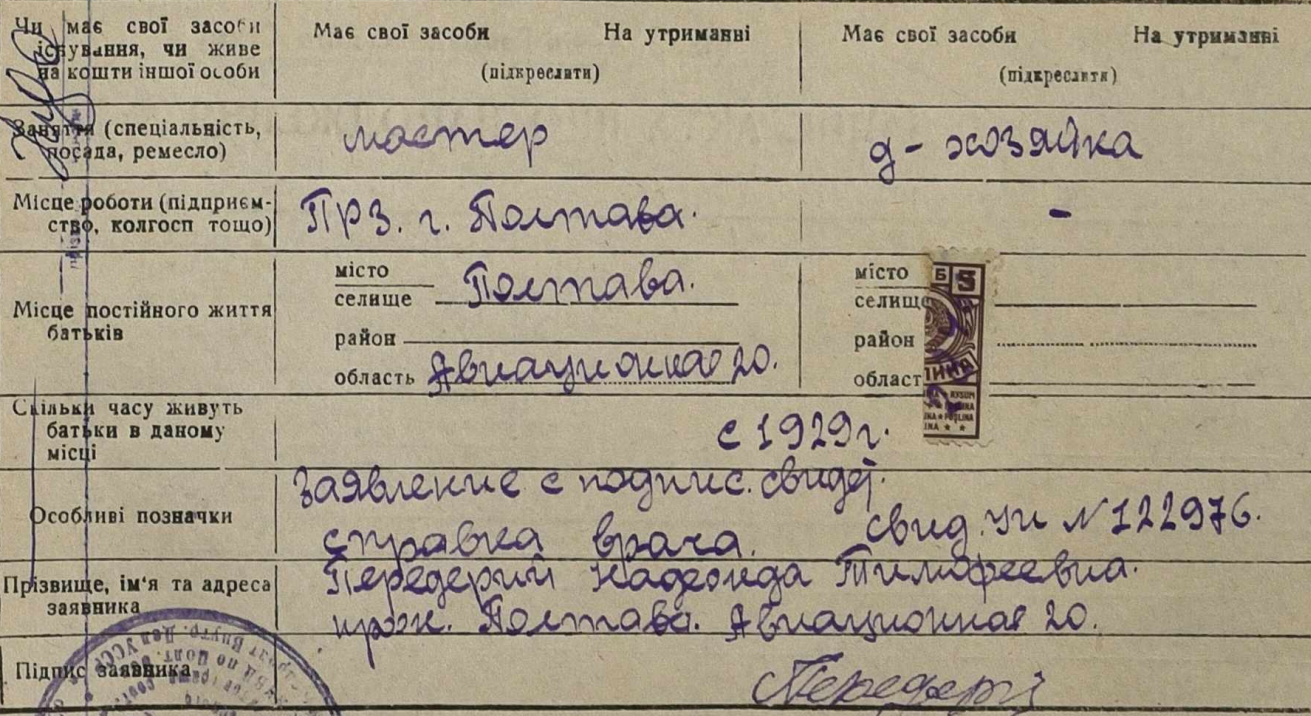 Чи має свої засоби існування, чи живе на кошти іншої особи
Має свої засоби На утриманні
(підкреслити)
Має свої засоби На утриманні
(підкреслити)
Заняття (спеціальність, посада, ремесло)
мастер
д - хозяйка
Місце роботи (підприєм-
ство, колгосп тощо)
ПРЗ. г. Полтава.
-
Місце постійного життя
батьків
місто
селище Полтава.
район
область Авиационная 20.
місто
селище
район
област
Б 5
Скільки часу живуть
батьки в даному
місці
с 1929 г.
Особливі позначки
Заявление с подпис. свидет.
справка врача. свид. УЛ N 122976.
Прізвище, ім'я та адреса
заявника
Передерий Надежда Тимофеевна.
прож. Полтава. Авиационная 20.
Підпис заявника
Передерий